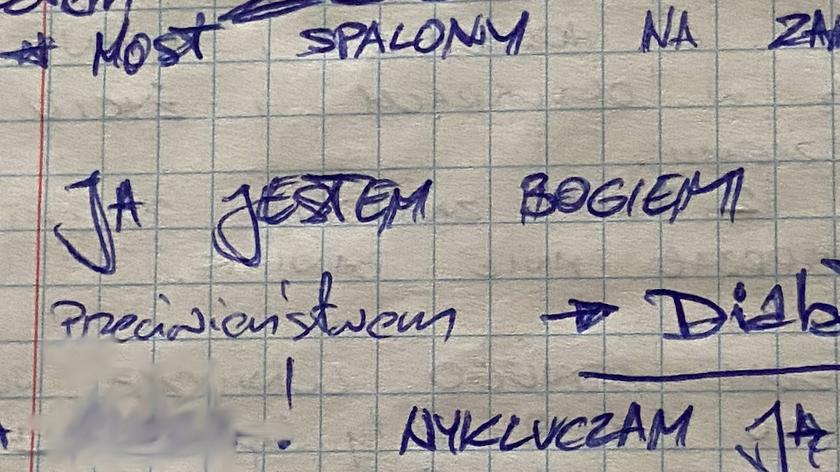 * MOST SPALONY NA
JA JESTEM BOGIEM
Przeciwieństwem →
! WYKLUCZAM JĄ